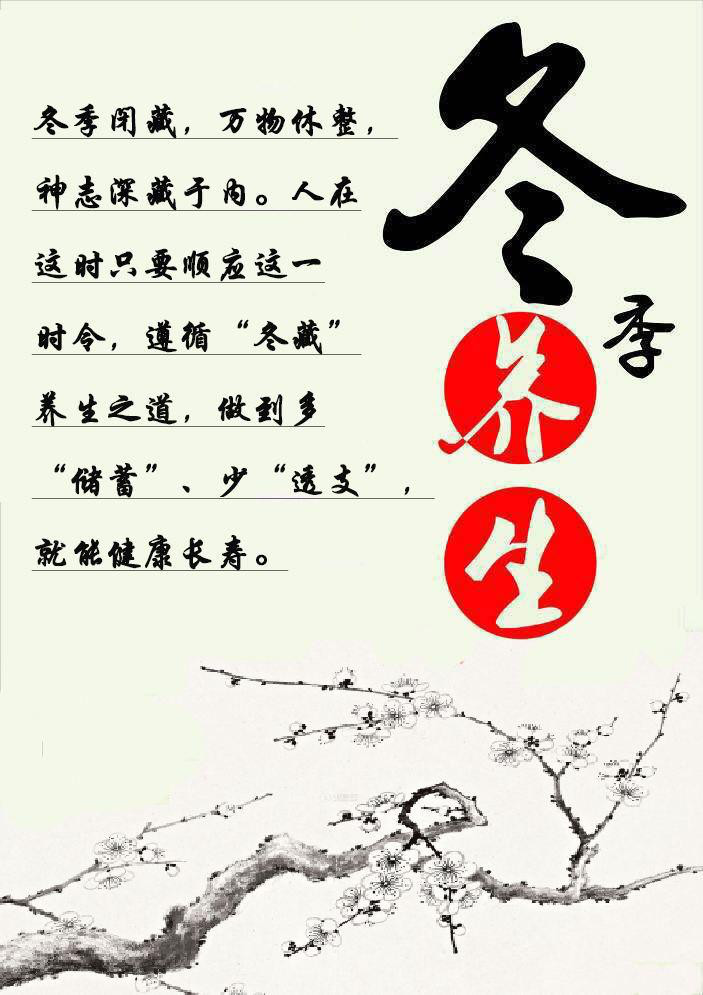 冬季养生
冬季闭藏，万物休整，
神志深藏于内。人在
这时只要顺应这一
时令，遵循“冬藏”
养生之道，做到多
“储蓄”、少“透支”，
就能健康长寿。